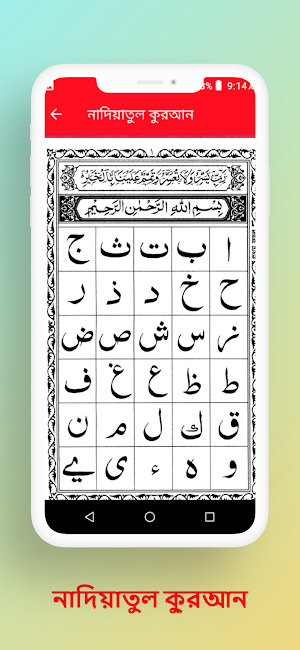 8% 9:14 A
নাদিয়াতুল কুরআন
رَبِّ يَسِّرْ وَلَا تُعَسِّرْ وَتَمِّمْ عَلَيْنَا بِالْخَيْرِ
بِسْمِ اللّٰهِ الرَّحْمٰنِ الرَّحِيْمِ
ا ب ت ث ج
ح خ د ذ ر
ز س ش ص ض
ط ظ ع غ ف
ق ك ل م ن
و ه ء ي يے
নাদিয়াতুল কুরআন